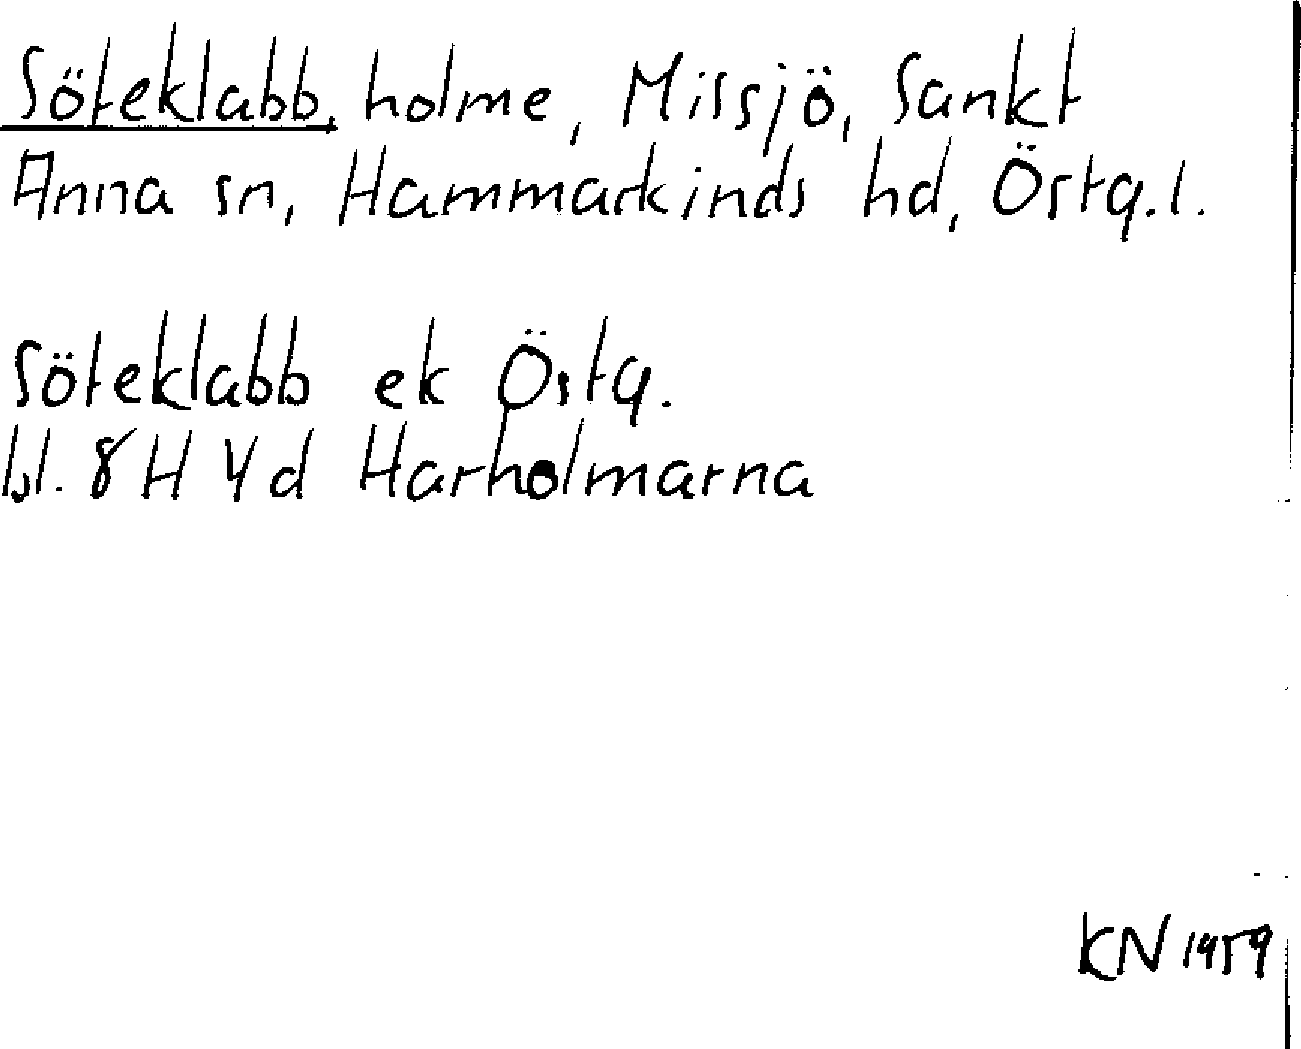 Söteklabb, holme, Missjö, Sankt
Anna sn, Hammarkinds hd, Östg.l.
Söteklabb ek Östg.
bl. 8H 4d Harholmarna
KN 1959